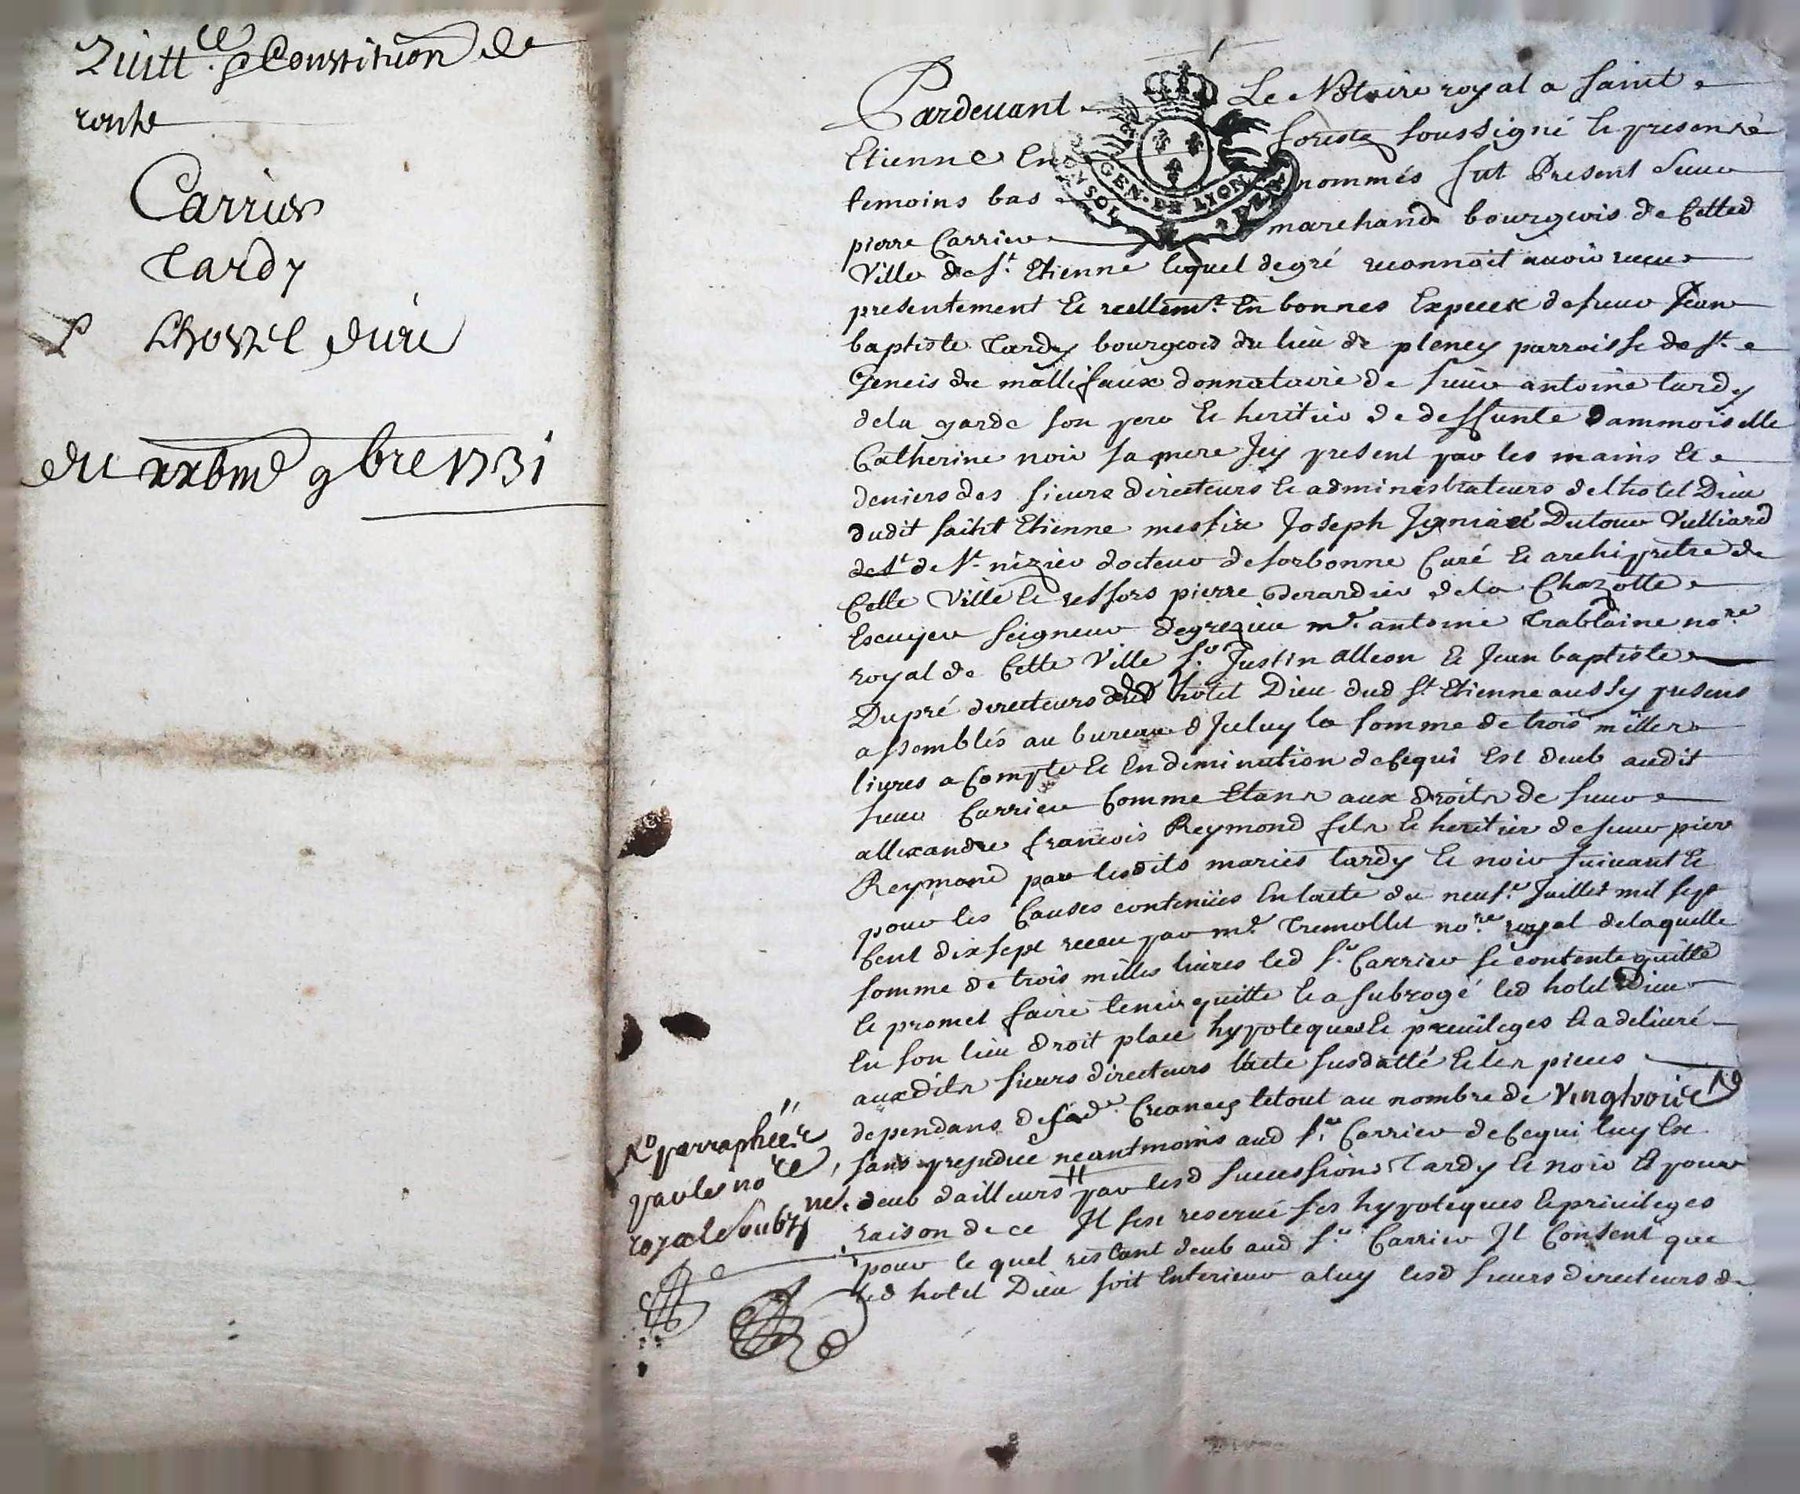 Quitt.ce & Constitution de
rente
Carrier
Tardy
p Lhostel dieu
du xxbme 9bre 1731
GEN. DE LION
Pardevant Le Notaire royal a Saint
Etienne En forests soussigné et presents
temoins bas nommés fut Present Sieur
pierre Carrier marchand bourgeois de Cetted
Ville de St. Etienne lequel de gré reconnoit avoir receu
presentement et reellemt. En bonnes Especes de sieur Jean
baptiste Tardy bourgeois du lieu de pleney parroisse de St.
Geneis de mallifaux donnataire de sieur antoine tardy
de la garde son pere et heritier de deffunte Dammoiselle
Catherine noir sa mere Icy present par les mains et
deniers des sieurs directeurs et administrateurs de lhotel Dieu
dudit saint Etienne messire Joseph Ignace Dutour Vuilliard
de St. nizier docteur de sorbonne Curé et archiprêtre de
Cette Ville et ressors pierre Gerardier de la Chazotte
Escuyer Seigneur de grezieu me. antoine Trablaine nore.
royal de Cette Ville sr. Justin alleon et Jean baptiste
Dupré directeurs dud hotel Dieu dud St. Etienne aussy presens
assemblés au bureau d Iceluy la somme de trois milles
livres a Compte et En diminution de Cequi Est deub audit
sieur Carrier Comme Etant aux droits de sieur
allexandre francois Reymond fils et heritier de sieur pierre
Reymond par lesdits mariés tardy et noir suivant et
pour les Causes contenües En lacte du neufe. Juillet mil sept
Cent dix sept receu par me. Tremollet nore. royal delaquelle
somme de trois milles livres led sr. Carrier se contente quitte
et promet faire tenir quitte et a subrogé led hotel Dieu
En son lieu droit place hypoteques et privileges et a delivré
auxdits sieurs directeurs lacte susdatté et les pieces
dependans de sade. Creance le tout au nombre de Vingt
sans prejudice neantmoins aud sr. Carrier de Cequi luy Est
deub dailleurs par lesd successions Tardy et noir et pour
raison de ce Il sest reservé ses hypoteques et privileges
pour le quel restant deub aud sr. Carrier Il Consent que
led hotel Dieu soit Enterieur a luy lesd sieurs directeurs de
parraphée
par les nore.